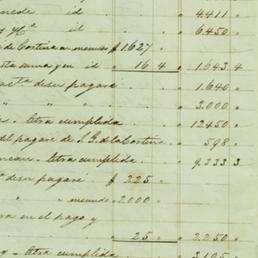 nede id " 4411 "
y Ca id " 6.450
de Cortina a menos $ 1627 "
esta suma y en id " 16.4 " 1.643.4
ta de su pagaré " 1.646 "
" " " 3.000 "
s - Letra cumplida " 12450 "
del pagaré de J. G. de la Cortina " 598 "
Letra cumplida " 9.333 3
ta de su pagaré $ 225 "
" " a menos 2000 "
ra en el pago y
" 25 " " 2250 "
y - Letra cumplida " 3105 "